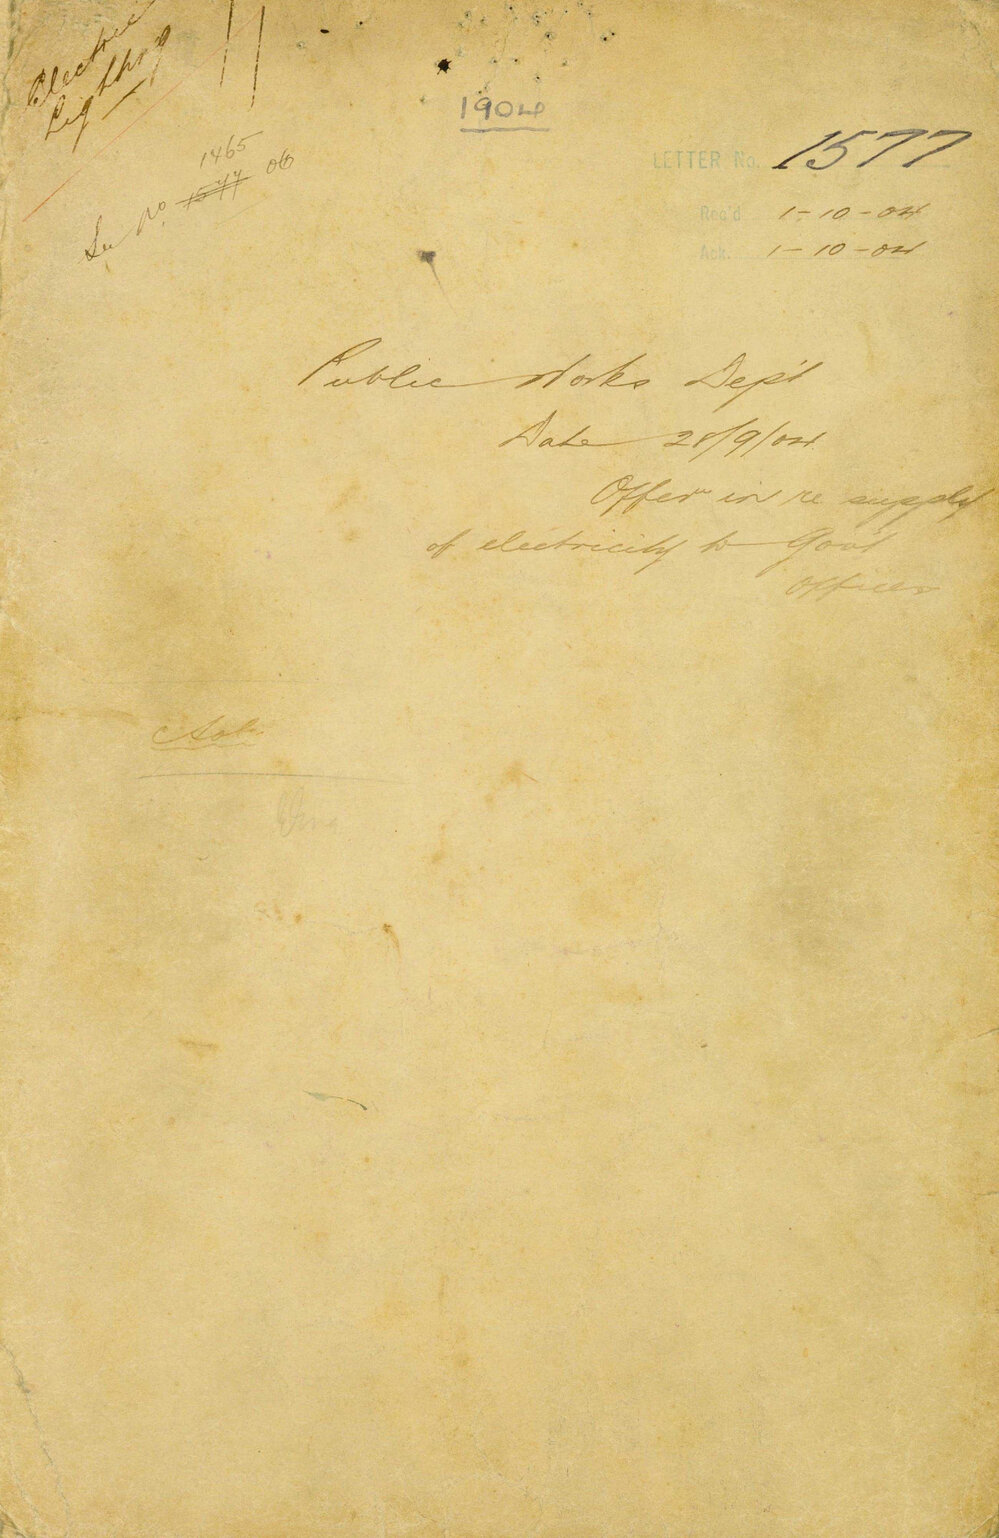 Electric
Lighting
1904
LETTER No. 1577
Rec'd 1-10-04
Ack. 1-10-04
1465
See No. 1577 06
Public Works Dep't
Date 28/9/04
Offer in re supply
of electricity to Gov't
Offices